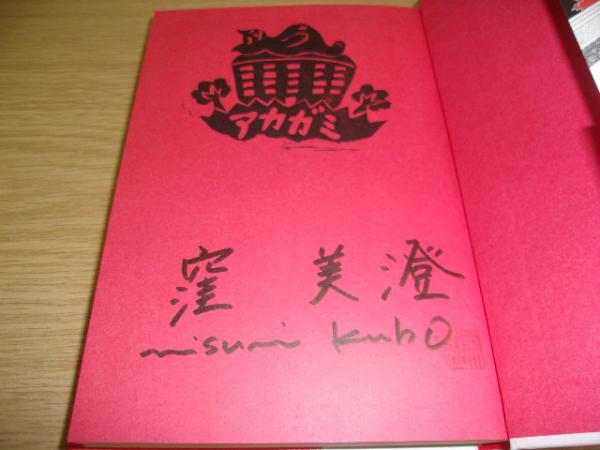 アカガミ
窪 美澄
misumi kubo